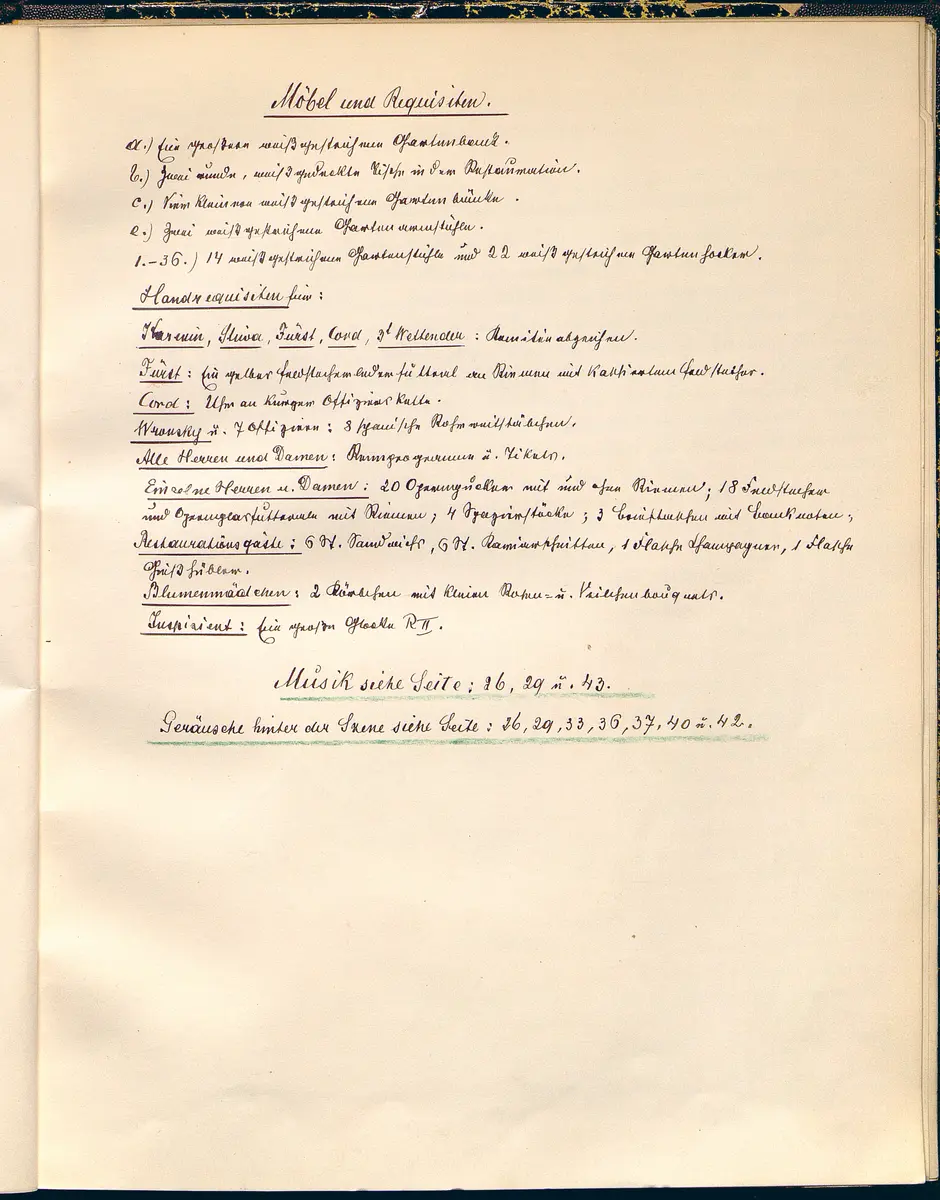 Möbel und Requisiten.
a.) Eine grosse weiß gestrichene Gartenbank.
b.) Zwei runde, weiß gedeckte Tische in der Restauration.
c.) Vier kleinere weiß gestrichene Gartenbänke.
e.) Zwei weiß gestrichene Gartenarmstühle.
1.–36.) 14 weiß gestrichene Gartenstühle und 22 weiß gestrichene Gartenhocker.
Handrequisiten für:
Karenin, Stiwa, Fürst, Cord, 3t Wettender: Komitéeabzeichen.
Fürst: Ein gelbes Feldstecherlederfutteral an Riemen mit kaschiertem Feldstecher.
Cord: Uhr an kurzer Offizierskette.
Wronsky u. 7 Offiziere: 8 spanische Rohrreitstäbchen.
Alle Herren und Damen: Rennprogramme u. Tikets.
Einzelne Herren u. Damen: 20 Operngucker mit und ohne Riemen; 18 Feldstecher
und Opernglasfutterale mit Riemen; 4 Spazierstöcke; 3 Brieftaschen mit Banknoten;
Restaurationsgäste: 6 St. Sandwichs, 6 St. Kaviarschnitten, 1 Flasche Champagner, 1 Flasche
Gießhübler.
Blumenmädchen: 2 Körbchen mit kleinen Rosen= u. Veilchenbouquets.
Inspizient: Eine große Glocke R II.
Musik siehe Seite: 26, 29 u. 43.
Geräusche hinter der Szene siehe Seite: 26, 29, 33, 36, 37, 40 u. 42.